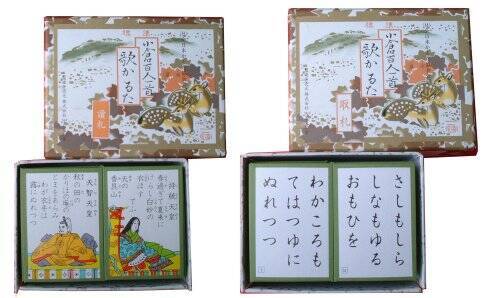 小倉百人一首
歌かるた
讀札
小倉百人一首
歌かるた
取札
持統天皇
春過ぎて夏来に
けらし白妙の
衣ほすてふ
天の
香具山
天智天皇
秋の田の
かりほの庵の
とまをあらみ
わが衣手は
露にぬれつつ
さしもしら
しなもゆる
おもひを
わかころも
てはつゆに
ぬれつつ